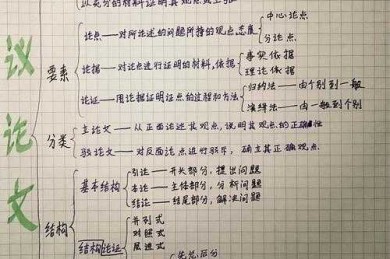 以充分的材料证明其观点
中心论点
论点——对所论述的问题所持的观点态度
分论点
事实依据
要素 论据——对论点进行证明的材料,依据
理论依据
归纳法——由个别到一般
论证——用论据证明论点的过程和方法
演绎法——由一般到个别
议论文
分类 立论文——从正面论述其观点,说明其观点的正确性
驳论文——对反面论点进行驳斥,确立其正确观点
引论——开头部分,提出问题
基本结构 本论——主体部分,分析问题
结论——结尾部分,解决问题
结构
并列式
对照式
结构论证 层进式
先总后分